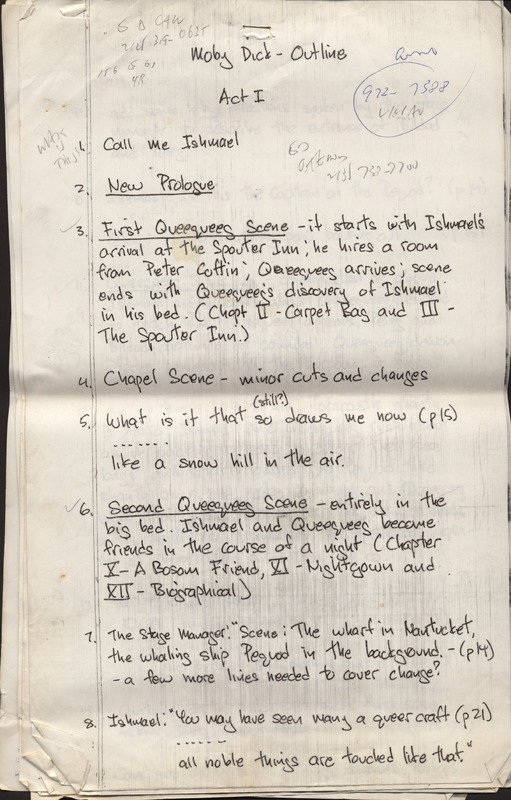 Moby Dick - Outline
922-7388
Act I
What
This?
1. Call me Ishmael
2. New Prologue
3. First Queequeg Scene - it starts with Ishmael's
arrival at the Spouter Inn; he hires a room
from Peter Coffin; Queequeg arrives; scene
ends with Queequeg's discovery of Ishmael
in his bed. (Chapt II - Carpet Bag and III -
The Spouter Inn.)
4. Chapel Scene - minor cuts and changes
(still?)
5. What is it that so draws me now (p15)
.......
like a snow hill in the air.
6. Second Queequeg Scene - entirely in the
big bed. Ishmael and Queequeg become
friends in the course of a night (Chapter
X - A Bosom Friend, XI - Nightgown and
XII - Biographical)
7. The Stage Manager: "Scene: The wharf in Nantucket,
the whaling ship Pequod in the background. - (p14)
- a few more lines needed to cover change?
8. Ishmael: "You may have seen many a queer craft (p21)
......
all noble things are touched like that."